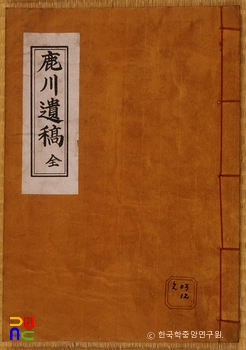 鹿川遺稿 全
© 한국학중앙연구원